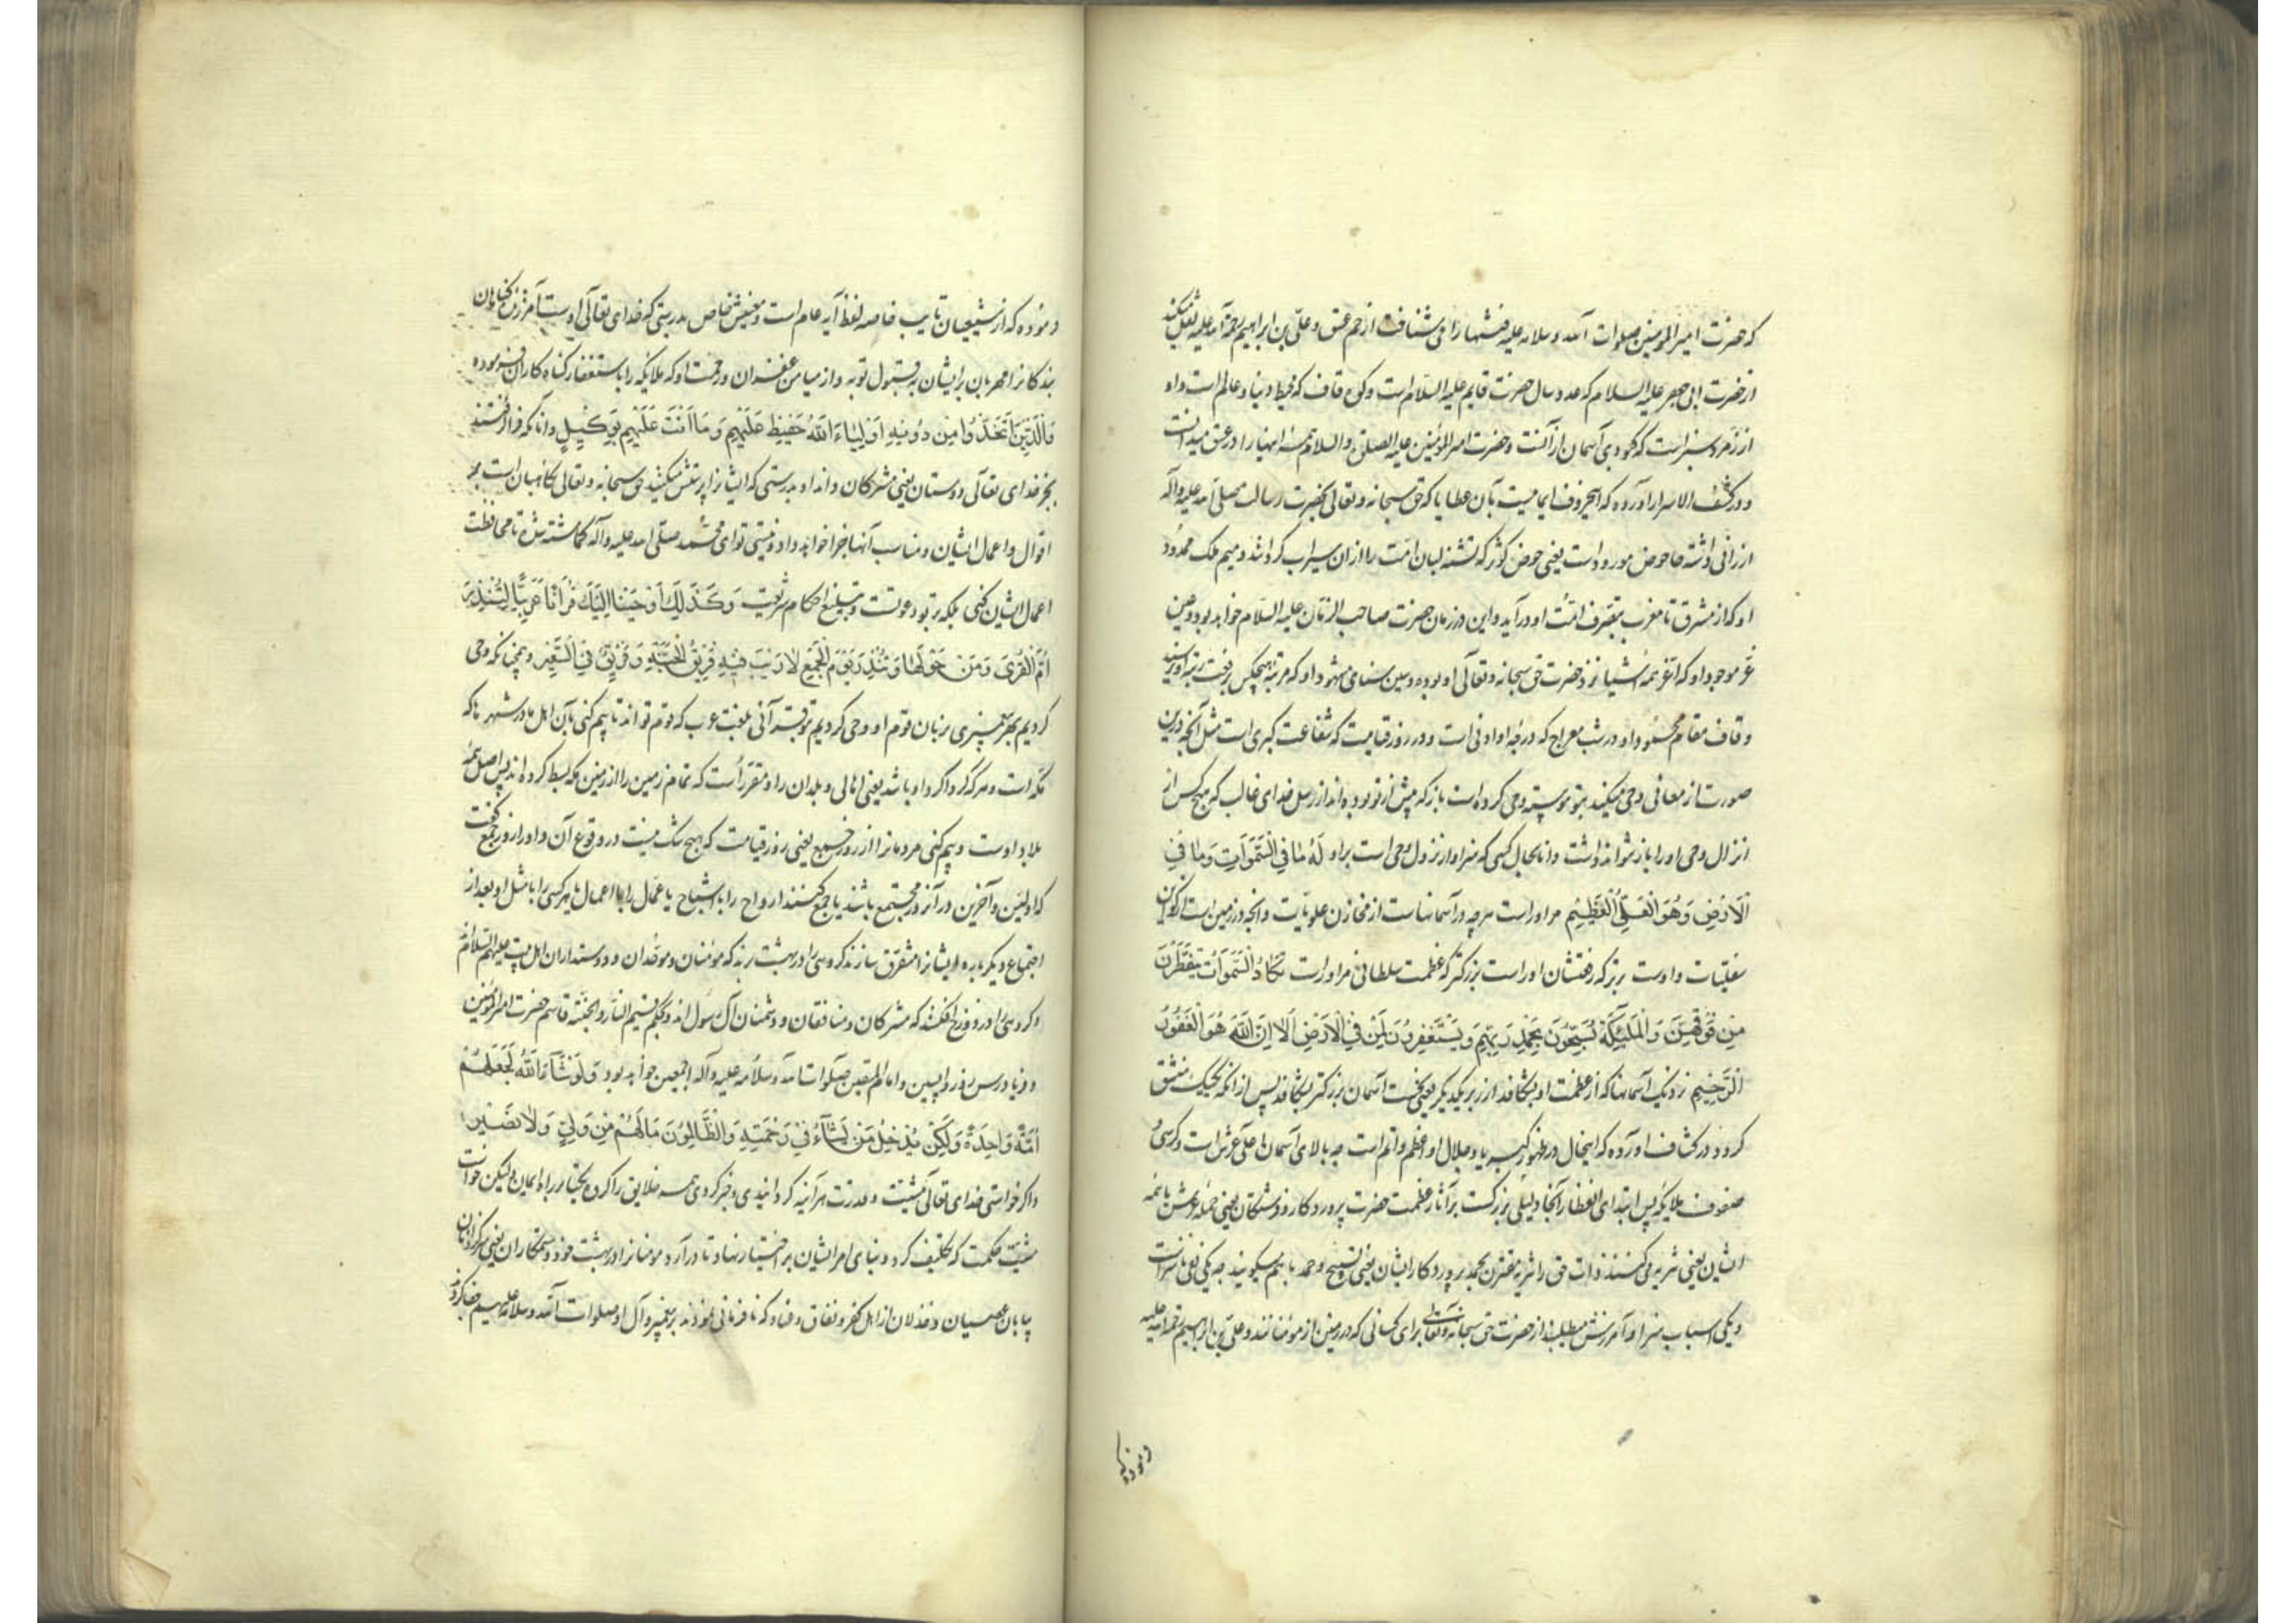 که حضرت امیرالمومنین صلوات الله و سلامه علیه فتنها را می شناخت از حم عسق و علی بن ابراهیم رحمة الله علیه نقل میکند
از حضرت ابی جعفر علیه السلام که عدد سال حضرت قایم علیه السلام است و کوه قاف که محیط دنیا و عالم است و او
از زمرد سبز است که کبودی آسمان از آنست و حضرت امیرالمؤمنین علیه الصلوة والسلام همه اینها را در عسق میدانست
و در کشف الاسرار آورده که این حروف ایماییست بآن عطایا که حق سبحانه و تعالی بحضرت رسالت صلی الله علیه وآله
ارزانی داشته حا حوض مورود است یعنی حوض کوثر که تشنه لبان امت را از ان سیراب گرداند و میم ملک ممدود
او که از مشرق تا مغرب بتصرف امت او در آید و این در زمان حضرت صاحب الزمان علیه السلام خواهد بود و عین
عز موجود او که اعز همه اشیا نزد حضرت حق سبحانه و تعالی او بوده و سین سنای مشهود او که مرتبه هیچکس برفعت رتبه او نرسد
و قاف مقام محمود او در شب معراج که درجه او ادنی است و در روز قیامت که شفاعت کبری است مثل آنچه درین
صورتست از معانی وحی میکند بتو و پیوسته وحی کرده است بآنکه پیش از تو بوده اند از رسل خدای غالب که هیچ کس از
انزال وحی او را باز نتواند داشت دانا بحال کسی که سزاوار نزول وحی است براو لَهُ مَا فِي السَّمَوَاتِ وَمَا فِي
الْاَرْضِ وَهُوَ الْعَلِيُّ الْعَظِيْمِ مراوراست هرچه در آسمانهاست از مخازن علویات و آنچه در زمین است از
سفلیات و اوست برتر که رفعتشان اوراست بزرکتر که عظمت سلطانی مراوراست تَكَادُ السَّمَوَاتُ يَتَفَطَّرْنَ
مِنْ فَوْقِهِنَّ وَالْمَلٰئِكَةُ يُسَبِّحُوْنَ بِحَمْدِ رَبِّهِمْ وَيَسْتَغْفِرُوْنَ لِمَنْ فِي الْاَرْضِ اَلَا اِنَّ اللّٰهَ هُوَ الْغَفُوْرُ
الرَّحِيْمُ نزدیک آسمانها که از عظمت او بشکافد از زبر یکدیگر یعنی نخست آسمان بزرکتر بشکافد پس از انکه یک یک منشق
کردد در کشاف آورده که اینحال در ظهور کبریا و جلال او اعظم و اتم است چه بالای آسمان اعلی عرش است و کرسی و
صفوف ملایکه پس ابتدای انفطار از آنجا دلیلی بزرکست بر آثار عظمت حضرت پروردکار و فرشتکان یعنی حمله عرش با همه
ایشان یعنی تنزیه می کنند ذات حق را تنزیه مقترن بحمد پروردکار ایشان یعنی تسبیح و حمد باهم میکویند چه یکی نفی ناسزاست
و یکی اسباب سزا و آمرزش میطلبند از حضرت حق سبحانه وتعالی برای کسانی که در زمین از مومنانند و علی بن ابراهیم رحمة الله علیه
فرموده که
فرموده که از شیعیان تایب خاصه لفظ آیه عام است و معنیش خاص بدرستی که خدای تعالی اوست آمرزنده کناهان
بندکانرا مهربان برایشان به قبول توبه و از میامن غفران و رحمت او که ملایکه را باستغفار کناه کاران فرموده
وَالَّذِيْنَ اتَّخَذُوا مِنْ دُوْنِهِ اَوْلِيَاءَ اللّٰهُ حَفِيْظٌ عَلَيْهِمْ وَمَا اَنْتَ عَلَيْهِمْ بِوَكِيْلٍ و آنانکه فرا گرفتند
بجز خدای تعالی دوستان یعنی مشرکان و انداد بدرستی که ایشانرا پرستش میکنند حق سبحانه و تعالی نکاهبان است بر
اقوال و اعمال ایشان و مناسب آنها جزا خواهد داد و نیستی تو ای محمد صلی الله علیه وآله کماشته شده تا محافظت
اعمال ایشان کنی بلکه بر تو دعوتست و تبلیغ احکام شریعت وَكَذٰلِكَ اَوْحَيْنَا اِلَيْكَ قُرْاٰنًا عَرَبِيًّا لِتُنْذِرَ
اُمَّ الْقُرٰى وَمَنْ حَوْلَهَا وَتُنْذِرَ يَوْمَ الْجَمْعِ لَا رَيْبَ فِيْهِ فَرِيْقٌ فِي الْجَنَّةِ وَفَرِيْقٌ فِي السَّعِيْرِ و همچنانکه وحی
کردیم بهر پیغمبری بزبان قوم او وحی کردیم بتو قرآنی بلغت عرب که قوم تواند تا بیم کنی بآن اهل مادر شهرها که
مکه است و هرکه کرداکرد او باشد یعنی اهالی و بلدان را و مقرر است که تمام زمین را از زمین مکه بسط کرده اند پس اصل همه
بلاد اوست و بیم کنی مردمانرا از روز جمع یعنی روز قیامت که هیچ شک نیست در وقوع آن و او را روز جمع گفت
که اولین و آخرین در آنروز مجتمع باشند یا جمع کنند ارواح را با اشباح یا عمال را با اعمال یا هرکسی را با مثل او و بعد از
اجتماع دیگر باره ایشانرا متفرق سازند کروهی را در بهشت برند که مومنان و موحدان و دوستداران اهل بیت علیهم السلام اند
و کروهی را در دوزخ افکنند که مشرکان و منافقان و دشمنان آل رسول اند و بحکم قسیم النار والجنة قاسم حضرت امیرالمومنین
و فریادرس روز واپسین و امام المتقین صلوات الله و سلامه علیه و آله اجمعین خواهد بود وَلَوْ شَآءَ اللّٰهُ لَجَعَلَهُمْ
اُمَّةً وَاحِدَةً وَلٰكِنْ يُدْخِلُ مَنْ يَشَآءُ فِيْ رَحْمَتِهِ وَالظَّالِمُوْنَ مَا لَهُمْ مِنْ وَلِيٍّ وَلَا نَصِيْرٍ
و اگر خواستی خدای تعالی مشیت و قدرت هر آینه کردانیدی و جبر کردی همه خلایق را یک ولیکن خواست
مشیت حکمت که تکلیف کرد و بنای امر ایشان بر اختیار نهاد تا در آرد مومنانرا در بهشت خود و ستمکاران یعنی سرکردانان
بیابان عصیان و خذلان از اهل کفر و نفاق و عناد که نافرمانی نمودند بر پیغمبر و آل او صلوات الله و سلامه علیهم جفا کردند